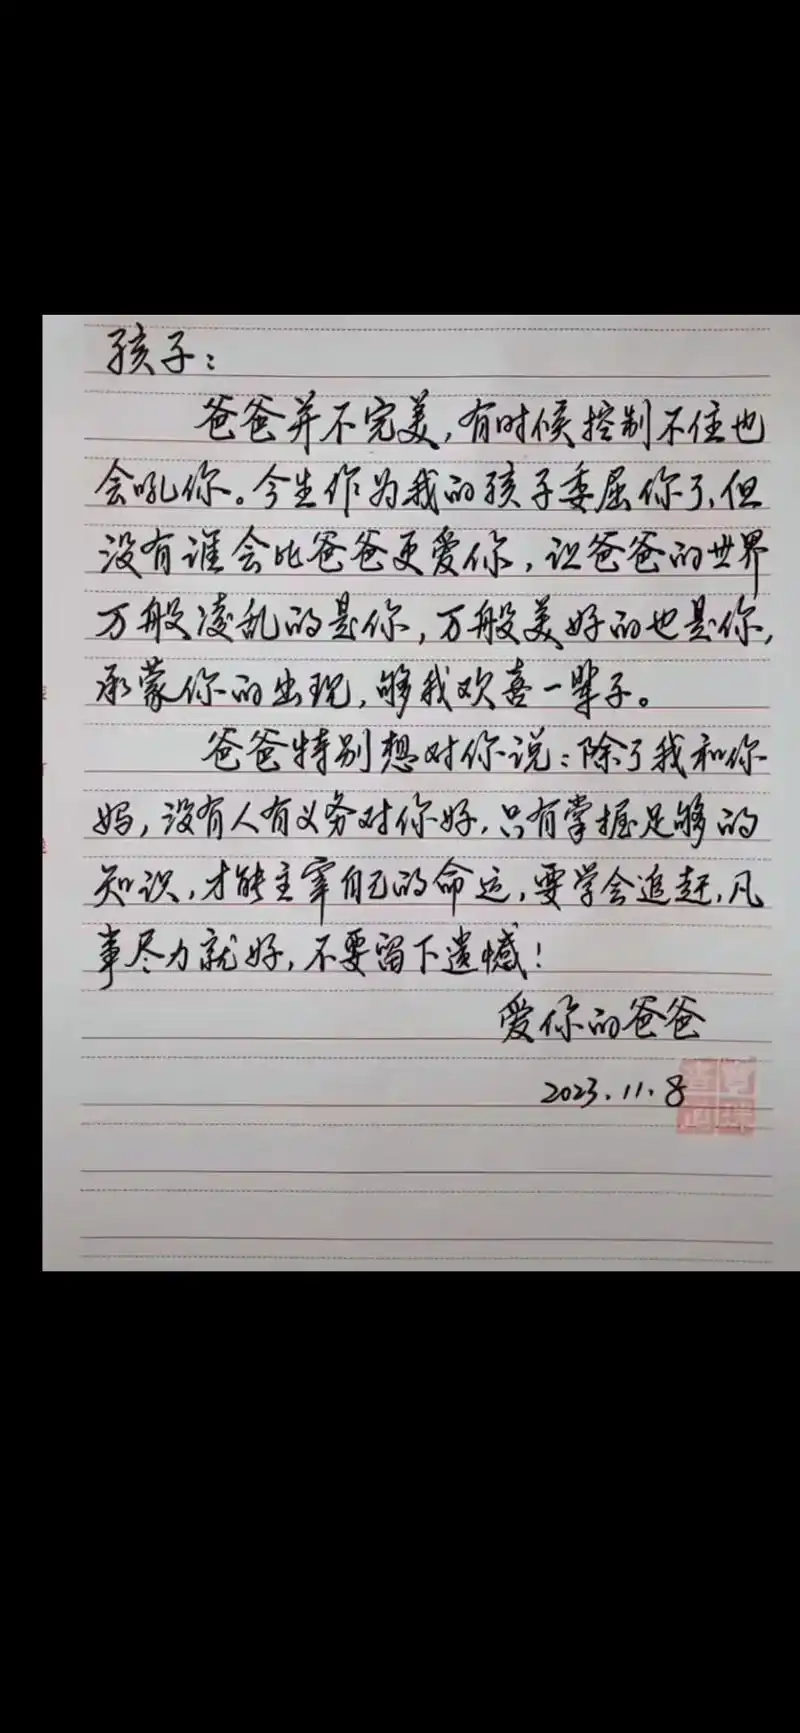 孩子：
爸爸并不完美，有时候控制不住也
会吼你。今生作为我的孩子委屈你了，但
没有谁会比爸爸更爱你，让爸爸的世界
万般凌乱的是你，万般美好的也是你，
承蒙你的出现，够我欢喜一辈子。
爸爸特别想对你说：除了我和你
妈，没有人有义务对你好，只有掌握足够的
知识，才能主宰自己的命运，要学会追赶，凡
事尽力就好，不要留下遗憾！
爱你的爸爸
2023.11.8